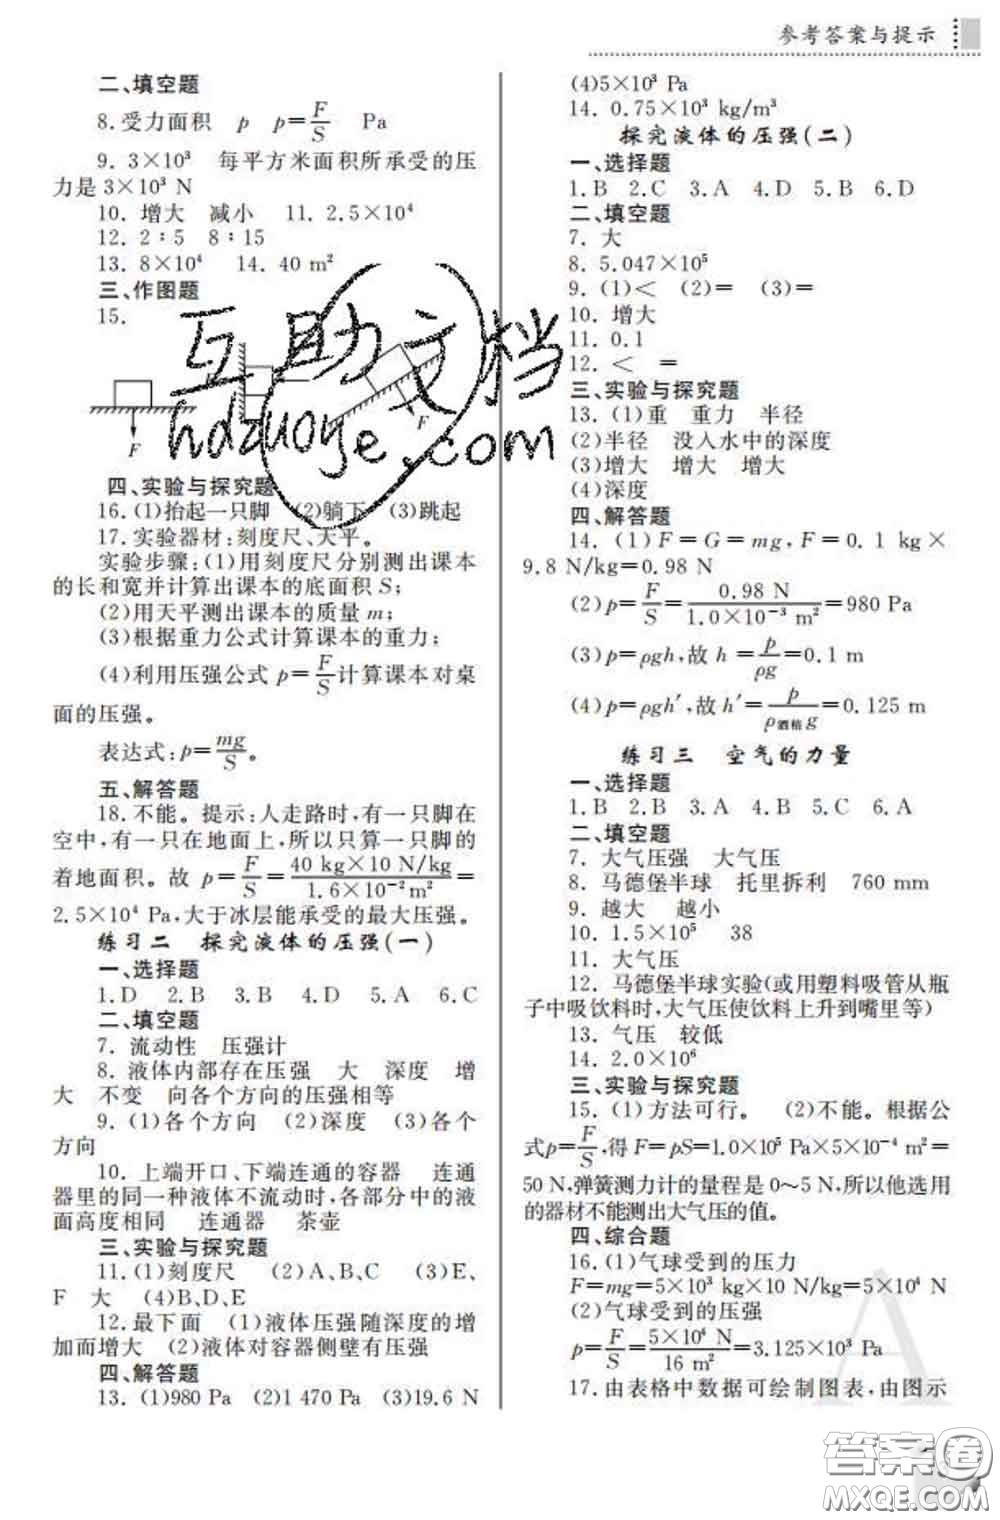 参考答案与提示
二、填空题
8. 受力面积　p　p=F/S　Pa
9. 3×10³　每平方米面积所承受的压
力是 3×10³ N
10. 增大　减小　11. 2.5×10⁴
12. 2∶5　8∶15
13. 8×10⁴　14. 40 m²
三、作图题
15.
F
F
互助文档
hdzuoye.com
四、实验与探究题
16. (1)抬起一只脚　(2)躺下　(3)跳起
17. 实验器材:刻度尺、天平。
实验步骤:(1)用刻度尺分别测出课本
的长和宽并计算出课本的底面积 S;
(2)用天平测出课本的质量 m;
(3)根据重力公式计算课本的重力;
(4)利用压强公式 p=F/S 计算课本对桌
面的压强。
表达式:p=mg/S。
五、解答题
18. 不能。提示:人走路时,有一只脚在
空中,有一只在地面上,所以只算一只脚的
着地面积。故 p=F/S=40 kg×10 N/kg/1.6×10⁻²m²=
2.5×10⁴ Pa,大于冰层能承受的最大压强。
练习二　探究液体的压强(一)
一、选择题
1. D　2. B　3. B　4. D　5. A　6. C
二、填空题
7. 流动性　压强计
8. 液体内部存在压强　大　深度　增
大　不变　向各个方向的压强相等
9. (1)各个方向　(2)深度　(3)各个
方向
10. 上端开口、下端连通的容器　连通
器里的同一种液体不流动时,各部分中的液
面高度相同　连通器　茶壶
三、实验与探究题
11. (1)刻度尺　(2)A、B、C　(3)E、
F　大　(4)B、D、E
12. 最下面　(1)液体压强随深度的增
加而增大　(2)液体对容器侧壁有压强
四、解答题
13. (1)980 Pa　(2)1 470 Pa　(3)19.6 N
(4)5×10³ Pa
14. 0.75×10³ kg/m³
探究液体的压强(二)
一、选择题
1. B　2. C　3. A　4. D　5. B　6. D
二、填空题
7. 大
8. 5.047×10⁵
9. (1)<　(2)=　(3)=
10. 增大
11. 0.1
12. <　=
三、实验与探究题
13. (1)重　重力　半径
(2)半径　没入水中的深度
(3)增大　增大　增大
(4)深度
四、解答题
14. (1)F=G=mg,F=0.1 kg×
9.8 N/kg=0.98 N
(2)p=F/S=0.98 N/1.0×10⁻³ m²=980 Pa
(3)p=ρgh,故 h=p/ρg=0.1 m
(4)p=ρgh′,故 h′=p/ρ酒精g=0.125 m
练习三　空气的力量
一、选择题
1. B　2. B　3. A　4. D　5. C　6. A
二、填空题
7. 大气压强　大气压
8. 马德堡半球　托里拆利　760 mm
9. 越大　越小
10. 1.5×10⁵　38
11. 大气压
12. 马德堡半球实验(或用塑料吸管从瓶
子中吸饮料时,大气压使饮料上升到嘴里等)
13. 气压　较低
14. 2.0×10⁶
三、实验与探究题
15. (1)方法可行。　(2)不能。根据公
式p=F/S,得 F=pS=1.0×10⁵ Pa×5×10⁻⁴ m²=
50 N,弹簧测力计的量程是 0~5 N,所以他选用
的器材不能测出大气压的值。
四、综合题
16. (1)气球受到的压力
F=mg=5×10³ kg×10 N/kg=5×10⁴ N
(2)气球受到的压强
p=F/S=5×10⁴ N/16 m²=3.125×10³ Pa
17. 由表格中数据可绘制图表,由图示
A
答案圈
MXQE.COM